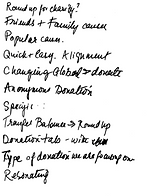 Roundup for charity?
Friends + Family cause
Popular cause.
Quick + Easy. Alignment
Changing Global → donate
Anonymous Donation
Specific :
Transfer Balance → Round up
Donation tab - with
Type of donation we are focusing on
Resonating